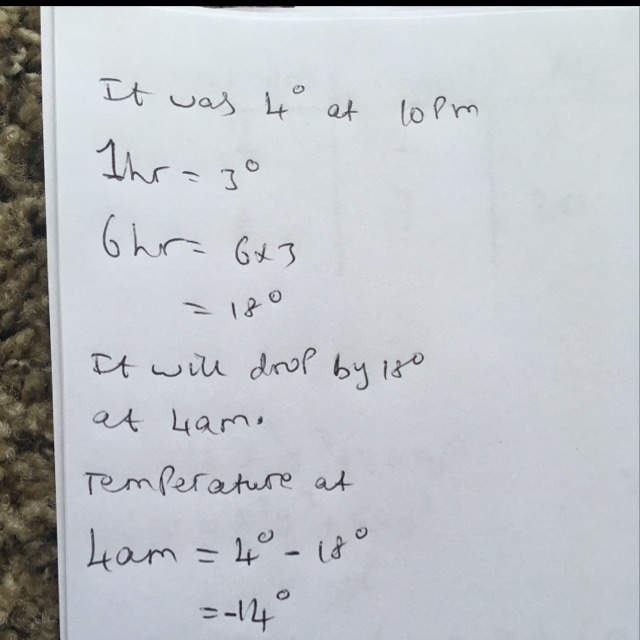 It was 4° at 10Pm
1hr = 3°
6hr = 6x3
= 18°
It will drop by 18°
at 4am.
Temperature at
4am = 4° - 18°
= -14°